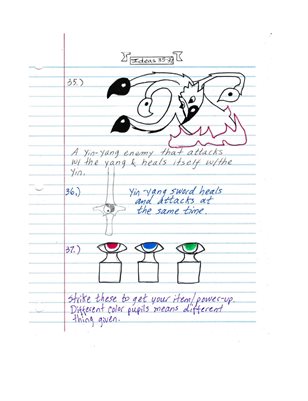 Ideas 35-37
35.)
A yin-yang enemy that attacks
w/ the yang & heals itself w/the
yin.
36.)
Yin-yang sword heals
and attacks at
the same time.
37.)
Strike these to get your item/power-up.
Different color pupils means different
thing given.